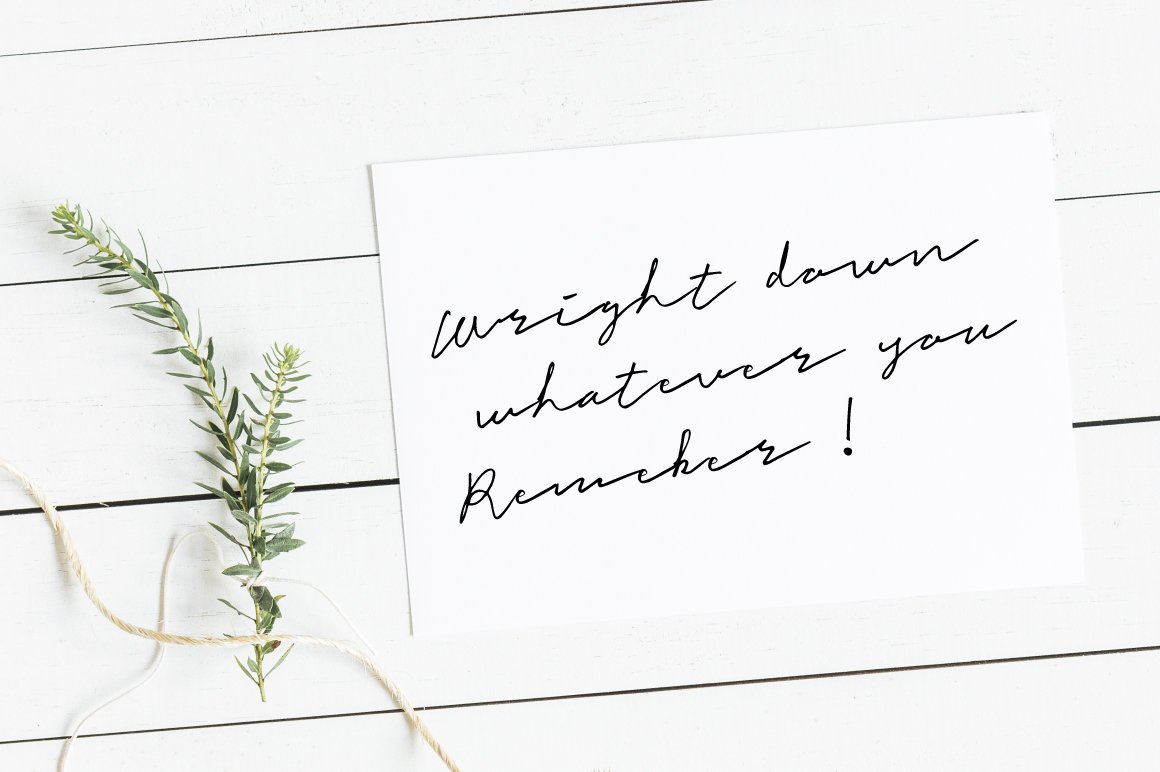 Wright down
whatever you
Remeker !